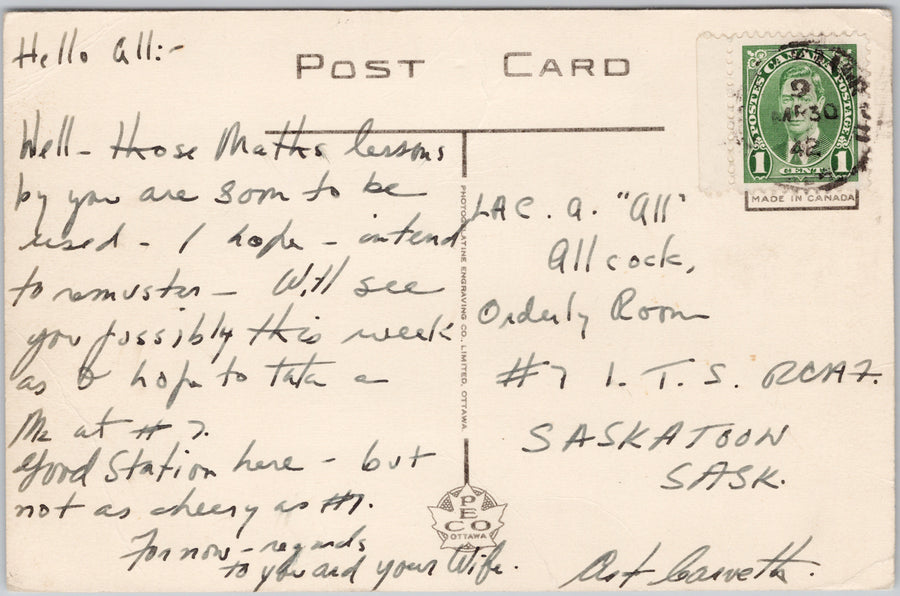 Hello All:-
POST CARD
Well - those Maths lessons
by you are soon to be
used - I hope - intend
to remuster - Will see
you possibly this week
as I hope to take a
M2 at #7.
Good Station here - but
not as cheery as #7.
For now - regards
to you and your Wife.
Art Carveth.
PHOTOGELATINE ENGRAVING CO. LIMITED, OTTAWA
PECO
OTTAWA
POSTES CANADA POSTAGE
1 1
9
30
42
MADE IN CANADA
LAC. A. "All"
Allcock,
Orderly Room
#7 I. T. S. RCAF.
SASKATOON
SASK.